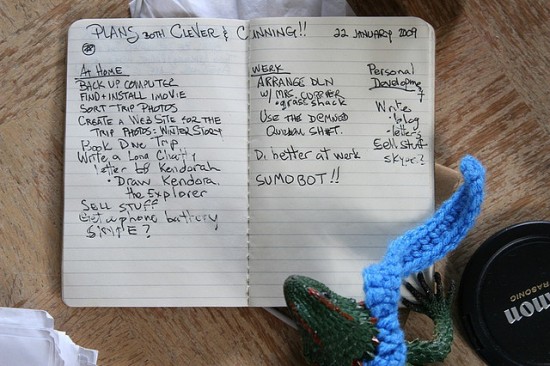 PLANS BOTH CLEVER & CUNNING!! 22 JANUARY 2009
AT HOME
BACK UP COMPUTER
FIND + INSTALL IMOVIE
SORT TRIP PHOTOS
CREATE A WEB SITE FOR THE
TRIP PHOTOS: WINTER STORY
Book Dive Trip
Write a Long Chatty
letter to Kendorah
• Draw Kendora
the Explorer
SELL STUFF
Get a phone battery
SKYPE?
WERK
ARRANGE DLN
w/ MRS
• grass shack
USE THE
SHIFT.
Do better at werk
SUMOBOT!!
Personal
Development
Write
• blog
• letters
Sell stuff
skype?
Canon
RASONIC